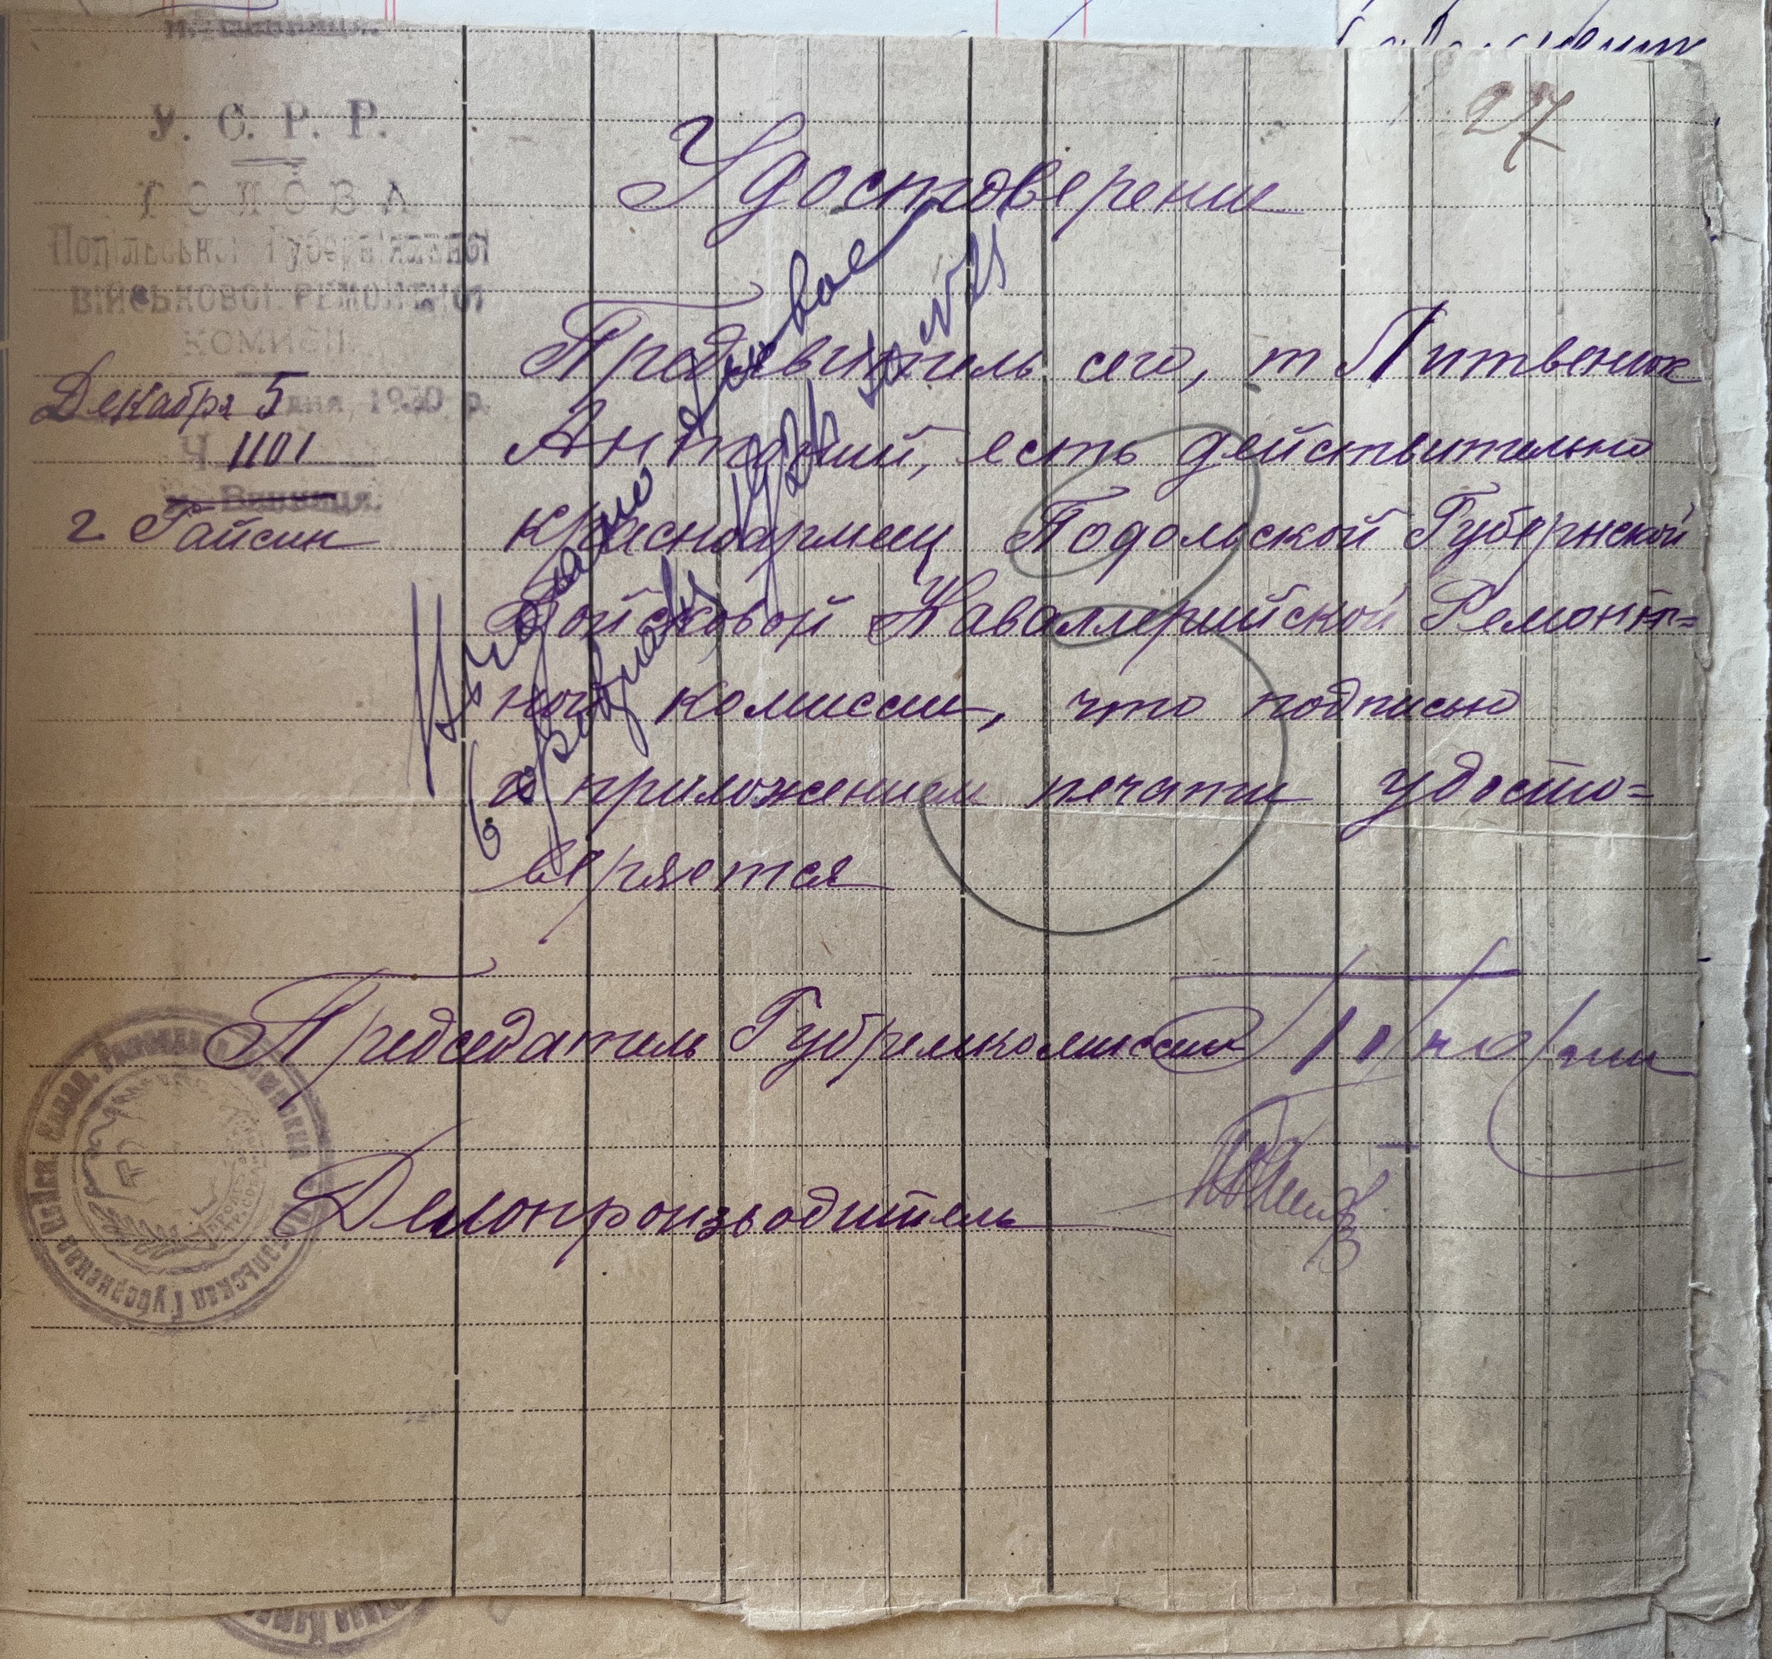 27
У. С. Р. Р.
ГОЛОВА
Подільської Губерніяльної
ВІЙСЬКОВОЇ РЕМОНТНОЇ
КОМИСІЇ.
Декабря 5 дня, 1920 р.
Ч. 1101
м. Винниця.
г Гайсин
Удостоверение
Предъявитель сего, т Литвенюк
Антоний, есть действительно
красноармеец Подольской Губернской
Войсковой Каваллерийской Ремонт=
ной комиссии, что подписью
и приложением печати удосто=
веряется
Председатель Губремкомиссии
Делопроизводитель
1921 за №21
Подольская Губернская Войск. Кавал. Ремонтная